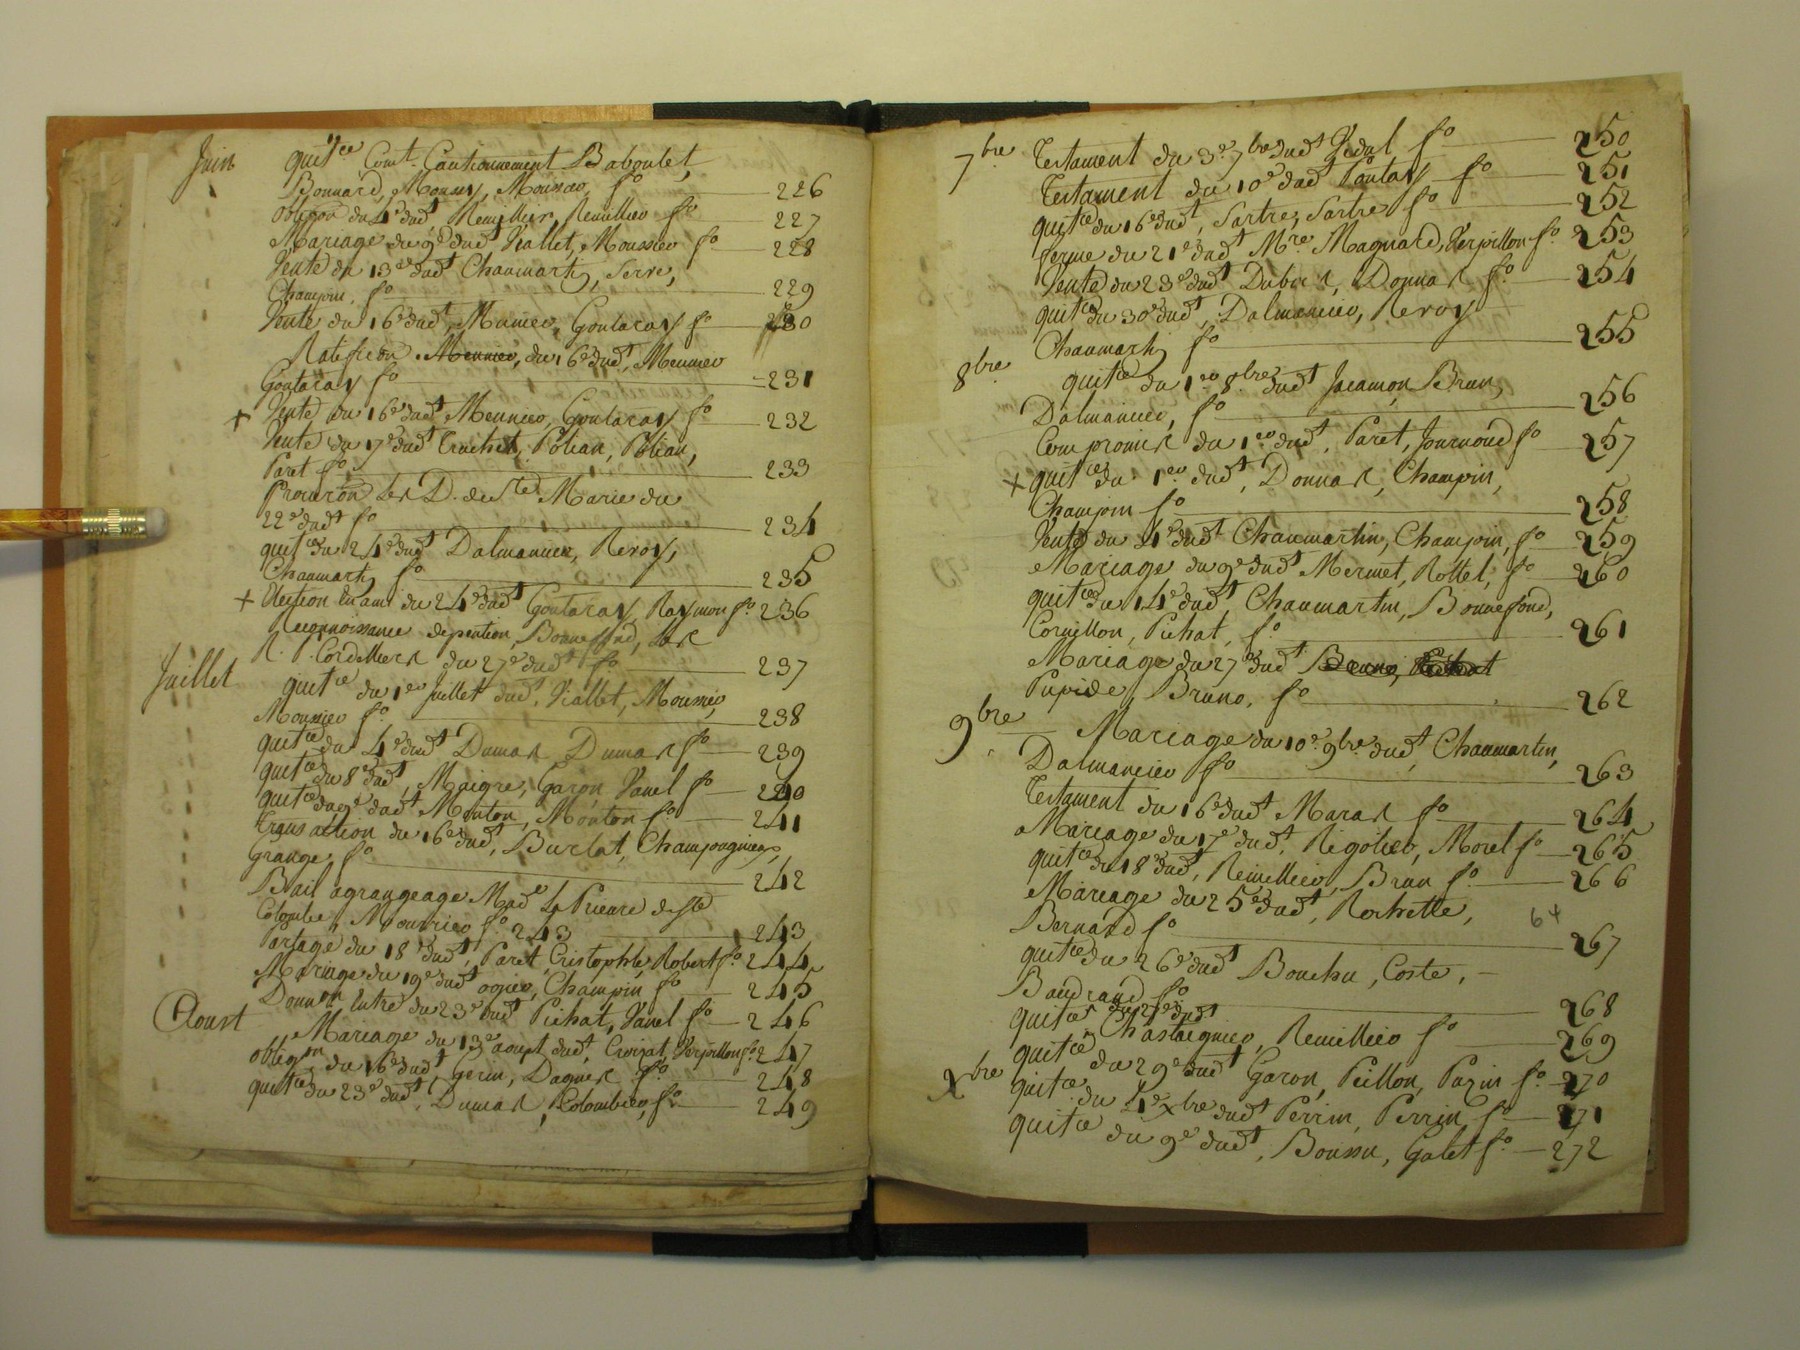 Juin quit.ce Cont. Cautionnement Baboulet,
Bonnard, Moussier, fo 226
obligon du 4e dud.t Remillier, Remillieu fo 227
Mariage du 9e dud.t Viallet, Moussier fo 228
Vente du 13e dud.t Chaumartin, Serve,
Champin, fo 229
Vente du 16e dud.t, Munier, Goutaray fo 230
Ratificon Meunier, du 16e dud.t, Meunier
Goutaray fo 231
+ Vente du 16e dud.t Meunier, Goutaray fo 232
Vente du 17e dud.t Truchet, Polian, Polian,
Paret fo 233
Procuron Les D. de Ste Marie du
22e dud.t fo 234
quit.ce du 24e dud.t Dalmancier, Reroy,
Chaumartin fo 235
+ Election en ami du 24e dud.t Goutaray, Raymon fo 236
Reconnoissance de pention, Bonnefond, Les
R. P. Cordelliers du 27e dud.t fo 237
Juillet quit.ce du 1er Juillet dud.t, Viallet, Moussier,
Moussier fo 238
quit.ce du 4e dud.t Dumas Dumas fo 239
quit.ce du 8e dud.t, Maigre, Garon, Vanel fo 240
quit.ce du 9e dud.t Monton, Monton fo 241
transaction du 16e dud.t, Burlat, Champagnieu,
Grange, fo 242
Bail a grangeage Made La Prieure de Ste
Colombe, fo 243 243
Partage du 18e dud.t, Paret, Cristophle, Robert fo 244
Mariage du 19e dud.t ogier, Champin fo 245
Donnon entre du 23e dud.t Pichat, Vanel fo 246
Aoust Mariage du 13e aoust dud.t, Croizat, Verpillon fo 247
obligon du 16e dud.t Gerin, Dagnes fo 248
quit.ce du 23e dud.t, Dumas, Colombier, fo 249
7bre Testament du 3e 7bre dud.t Vidal fo 250
Testament du 10e dud.t fo 251
quit.ce du 16e dud.t, Sartre, Sartre fo 252
ferme du 21e dud.t Mre Magnard, Verpillon fo 253
Vente du 23e dud.t Dubois, Donnas fo 254
quit.ce du 30e dud.t, Dalmancier, Reroy
Chaumartin fo 255
8bre quit.ce du 1er 8bre dud.t Jacamon, Brun,
Dalmancier, fo 256
Compromis du 1er dud.t, Paret, Journoud fo 257
+ quit.ce du 1er dud.t, Donnas, Champin,
Champin fo 258
Vente du 4e dud.t Chaumartin, Champin, fo 259
Mariage du 9e dud.t Mermet, Rottel, fo 260
quit.ce du 14e dud.t, Chaumartin, Bonnefond,
Cornillon, Pichat, fo 261
Mariage du 27e dud.t
Pupide, Bruno, fo 262
9bre Mariage du 10e 9bre dud.t, Chaumartin,
Dalmancier fo 263
Testament du 16e dud.t Maras fo 264
Mariage du 17e dud.t, Rigolier, Morel fo 265
quit.ce du 18e dud.t, Remillieu, Brun fo 266
Mariage du 25e dud.t, Rochette, 64
Bernard fo 267
quit.ce du 26e dud.t Bouchu, Coste,
Baudrand fo 268
quit.ce du 27e dud.t Chastagnier, Remillieu fo 269
quit.ce du 29e dud.t Garon, Peillon, Pazin fo 270
Xbre quit.ce du 4e Xbre dud.t Perrin, Perrin fo 271
quit.ce du 9e dud.t, Boussu, Galet fo 272